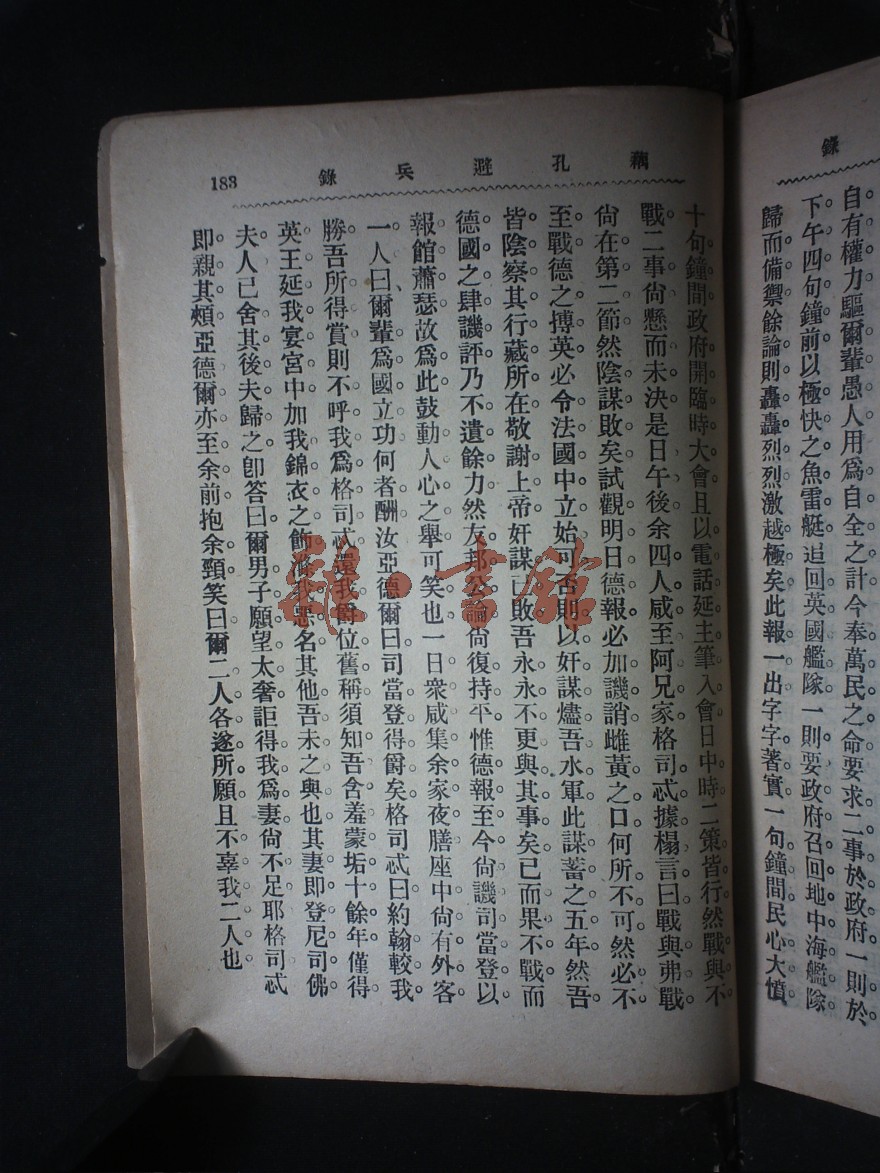 錄
自有權力驅爾輩愚人用爲自全之計今奉萬民之命要求二事於政府一則於
下午四句鐘前以極快之魚雷艇追回英國艦隊一則要政府召回地中海艦隊
歸而備禦餘論則轟轟烈烈激越極矣此報一出字字著實一句鐘間民心大憤
藕孔避兵錄
183
十句鐘間政府開臨時大會且以電話延主筆入會日中時二策皆行然戰與不
戰二事尚懸而未決是日午後余四人咸至阿兄家格司忒據榻言曰戰與弗戰
尚在第二節然陰謀敗矣試觀明日德報必加譏誚雌黃之口何所不可然必不
至戰德之搏英必令法國中立始可否則以奸謀燼吾水軍此謀蓄之五年然吾
皆陰察其行藏所在敬謝上帝奸謀已敗吾永永不更與其事矣已而果不戰而
德國之肆譏評乃不遺餘力然友邦公論尚復持平惟德報至今尚譏司當登以
報館蕭瑟故爲此鼓動人心之舉可笑也一日衆咸集余家夜膳座中尚有外客
一人曰爾輩爲國立功何者酬汝亞德爾曰司當登得爵矣格司忒曰約翰較我
勝吾所得賞則不呼我爲格司忒還我爵位舊稱須知吾含羞蒙垢十餘年僅得
英王延我宴宮中加我錦衣之飾滌我惡名其他吾未之與也其妻即登尼司佛
夫人已舍其後夫歸之卽答曰爾男子願望太奢詎得我爲妻尚不足耶格司忒
即親其頰亞德爾亦至余前抱余頸笑曰爾二人各遂所願且不辜我二人也
雜·書館